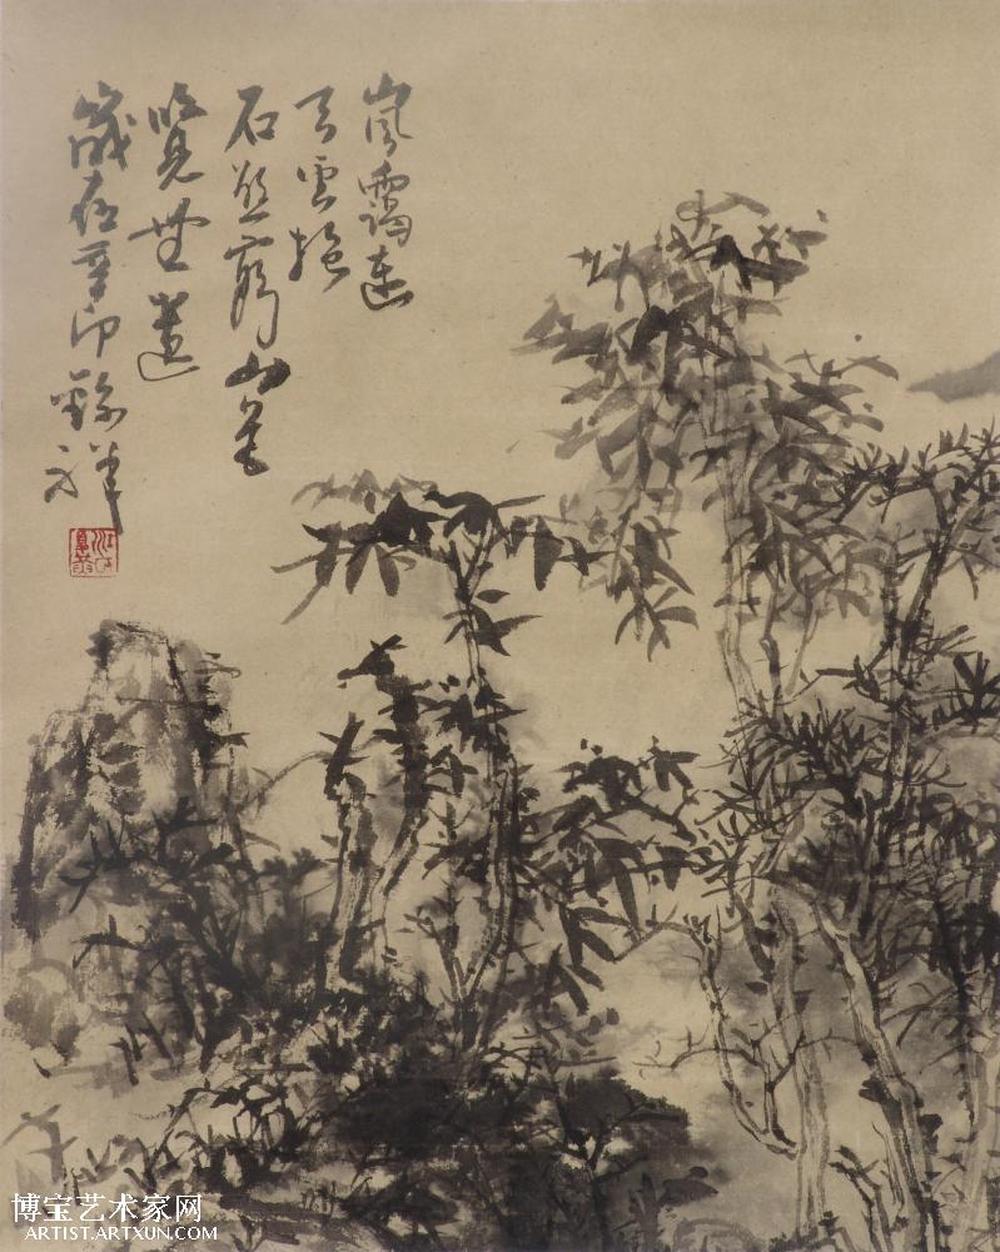 嵐靄連
天雲抱
石慾窮山色
覽無遺
歲在辛卯祥
博宝艺术家网
ARTIST.ARTXUN.COM